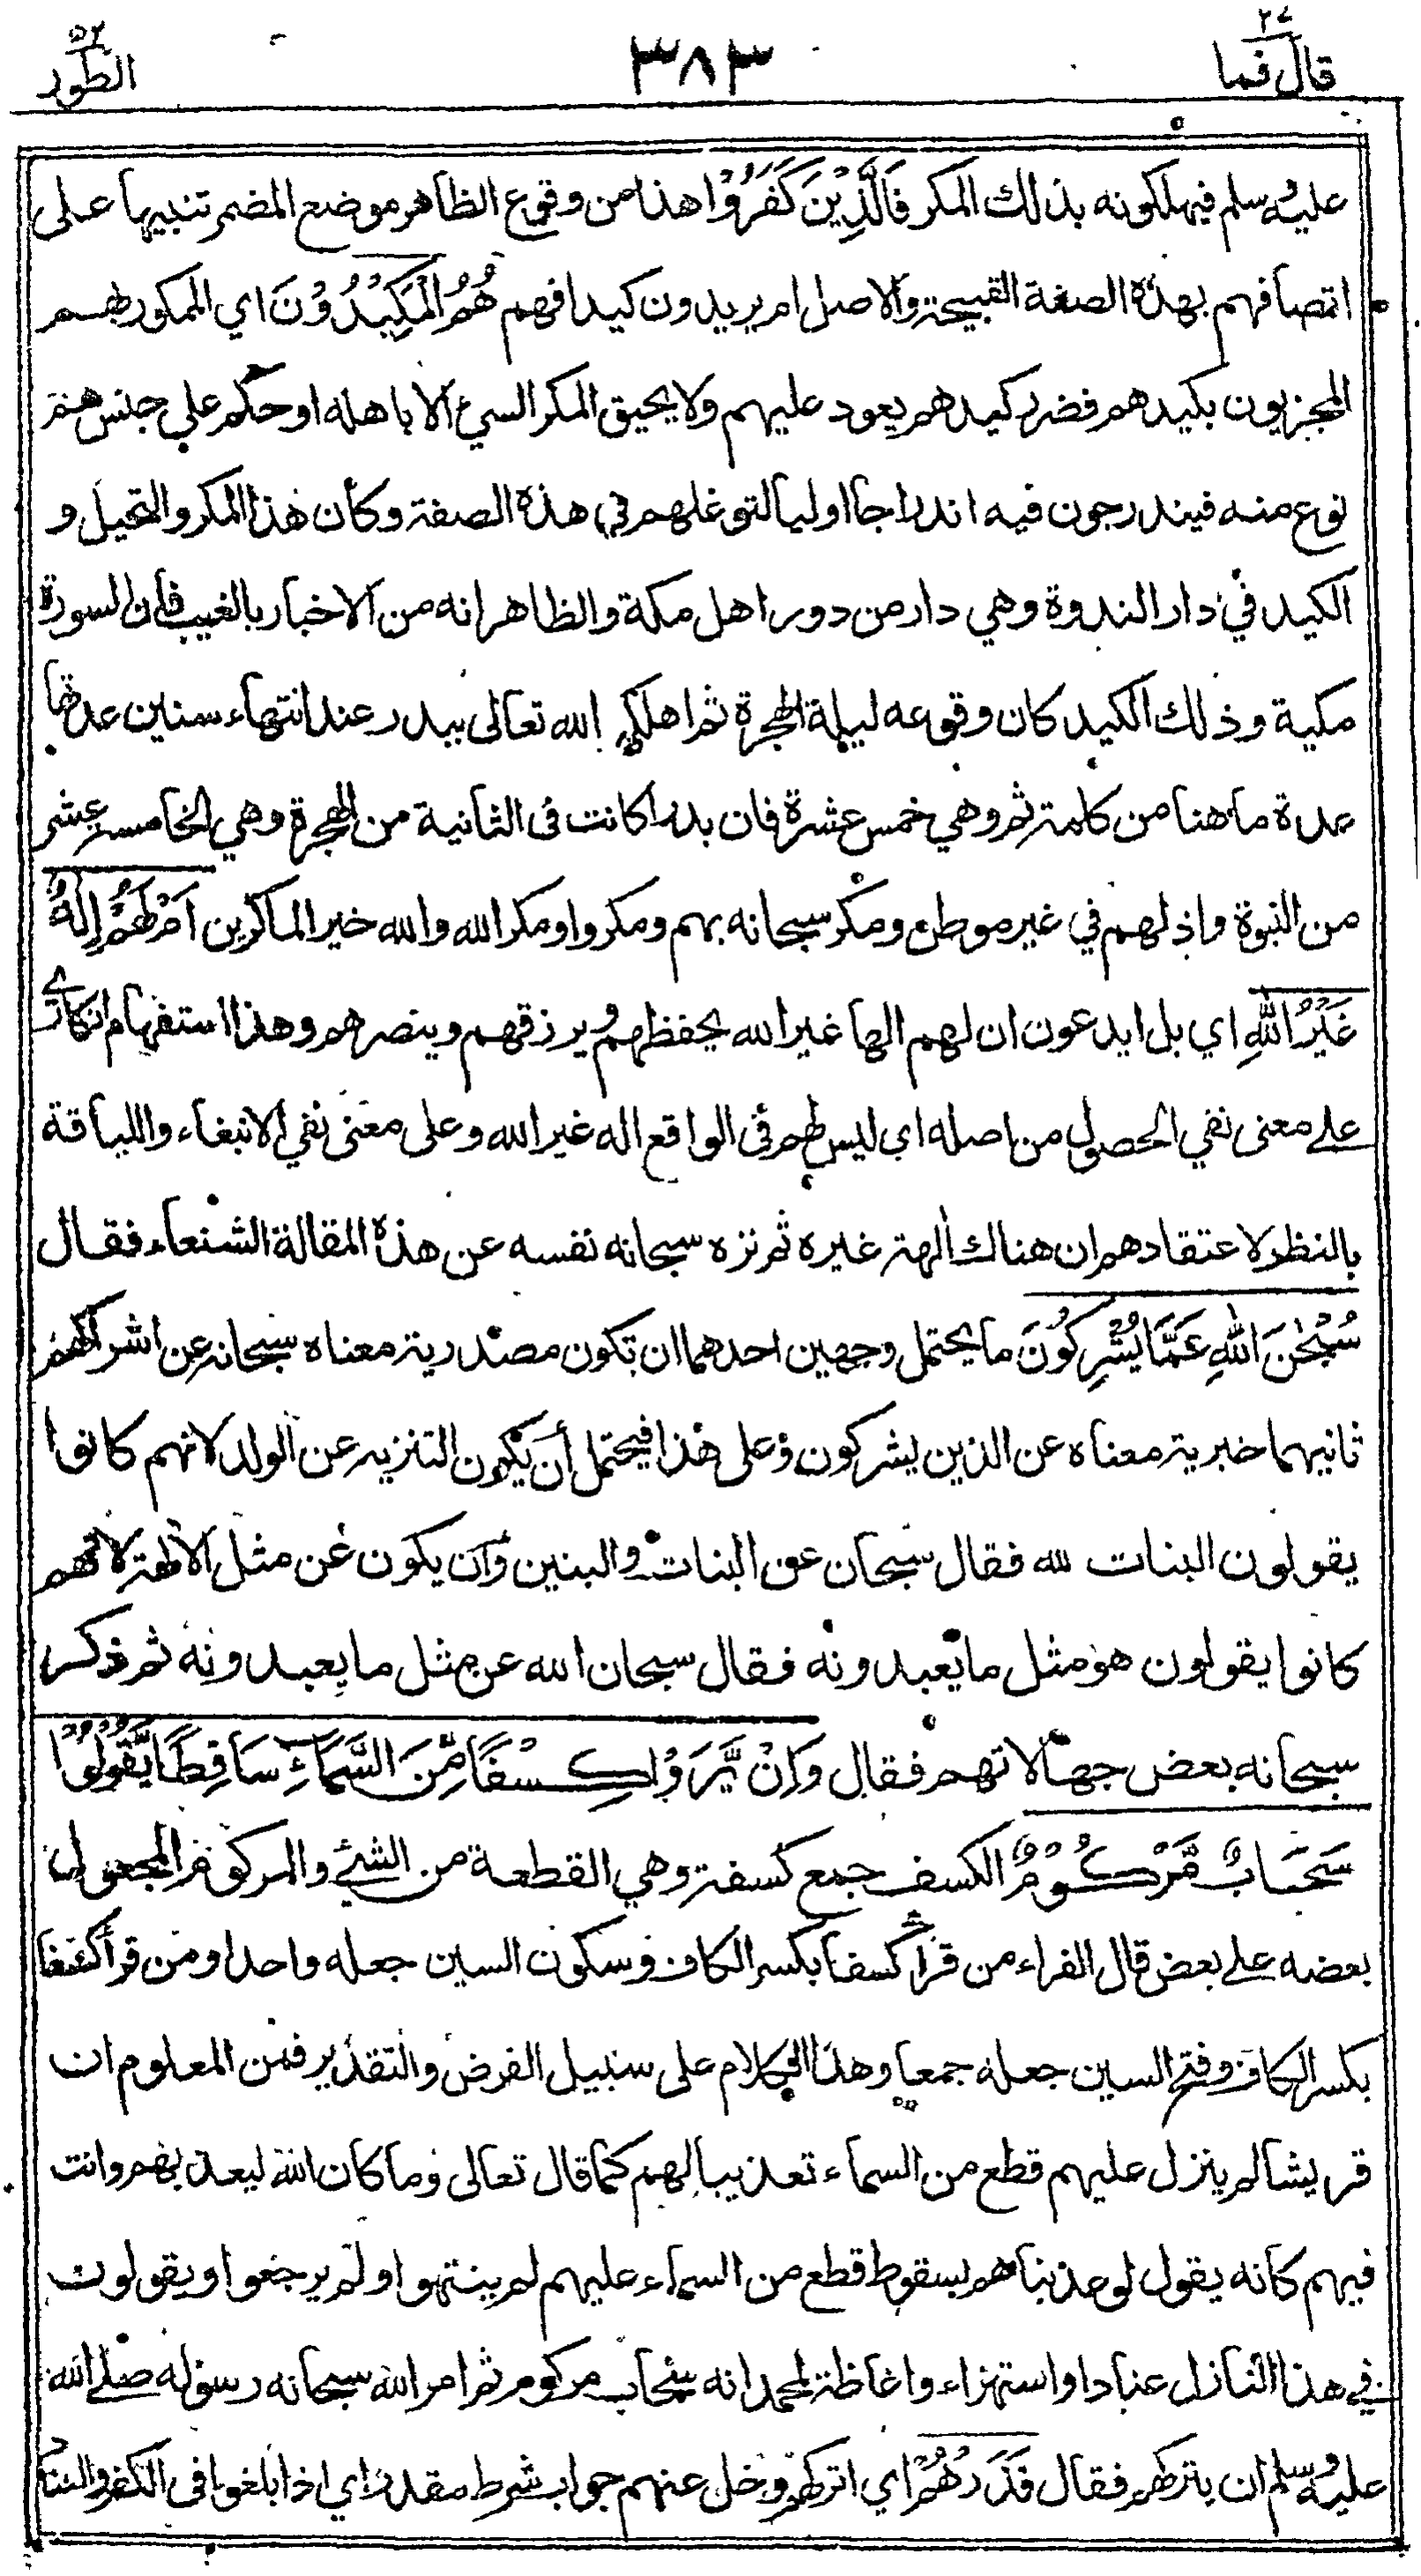 ٢٧ قال فما
٣٨٣
٥٢ الطور
عليه وسلم فيهلكونه بذلك المكر فَالَّذِيْنَ كَفَرُوْا هذا من وقوع الظاهر موضع المضمر تنبيها على
اتصافهم بهذه الصفة القبيحة والاصل ام يريدون كيدا فهم هُمُ الْمَكِيْدُوْنَ اي الممكور بهم
المجزيون بكيدهم فضرر كيدهم يعود عليهم ولا يحيق المكر السيئ الا باهله او حكم على جنس هم
نوع منه فيندرجون فيه اندراجا اوليا لتوغلهم في هذه الصفة وكأن هذا المكر والتحيل و
الكيد في دار الندوة وهي دار من دور اهل مكة والظاهر انه من الاخبار بالغيب فان السورة
مكية وذلك الكيد كان وقوعه ليلة الهجرة ثم اهلكهم الله تعالى ببدر عند انتهاء سنين عدتها
عدة ما هنا من كلمة ثم وهي خمس عشرة فان بدرا كانت فى الثانية من الهجرة وهي الخامسة عشر
من النبوة واذلهم في غير موطن ومكر سبحانه بهم ومكروا ومكر الله والله خير الماكرين اَمْ لَهُمْ اِلٰهٌ
غَيْرُ اللّٰهِ اي بل ايدعون ان لهم الها غير الله يحفظهم ويرزقهم وينصرهم وهذا استفهام انكاري
على معنى نفي الحصول من اصله اي ليس لهم فى الواقع اله غير الله وعلى معنى نفي الانبغاء واللياقة
بالنظر لاعتقادهم ان هناك الهة غيره ثم نزه سبحانه نفسه عن هذه المقالة الشنعاء فقال
سُبْحٰنَ اللّٰهِ عَمَّا يُشْرِكُوْنَ ما يحتمل وجهين احدهما ان تكون مصدرية معناه سبحانه عن اشراكهم
ثانيهما خبرية معناه عن الذين يشركون وعلى هذا فيحتمل أن يكون التنزيه عن الولد لانهم كانوا
يقولون البنات لله فقال سبحان عن البنات والبنين وان يكون عن مثل الالهة لانهم
كانوا يقولون هو مثل ما يعبدونه فقال سبحان الله عن مثل ما يعبدونه ثم ذكر
سبحانه بعض جهالاتهم فقال وَاِنْ يَّرَوْا كِسْفًا مِّنَ السَّمَآءِ سَاقِطًا يَّقُوْلُوْا
سَحَابٌ مَّرْكُوْمٌ الكسف جمع كسفة وهي القطعة من الشئ والمركوم المجعول
بعضه على بعض قال الفراء من قرأ كسفا بكسر الكاف وسكون السين جعله واحدا ومن قرأ كسفا
بكسر الكاف وفتح السين جعله جمعا وهذا الكلام على سبيل الفرض والتقدير فمن المعلوم ان
قريشا لم ينزل عليهم قطع من السماء تعذيبا لهم كما قال تعالى وما كان الله ليعذبهم وانت
فيهم كانه يقول لو عذبناهم بسقوط قطع من السماء عليهم لم ينتهوا ولم يرجعوا ويقولون
في هذا النازل عنادا واستهزاء واغاظة لمحمد انه سحاب مركوم ثم امر الله سبحانه رسوله صلى الله
عليه وسلم ان يتركهم فقال فَذَرْهُمْ اي اتركهم وخل عنهم جواب شرط مقدر اي اذا بلغوا فى الكفر والعناد